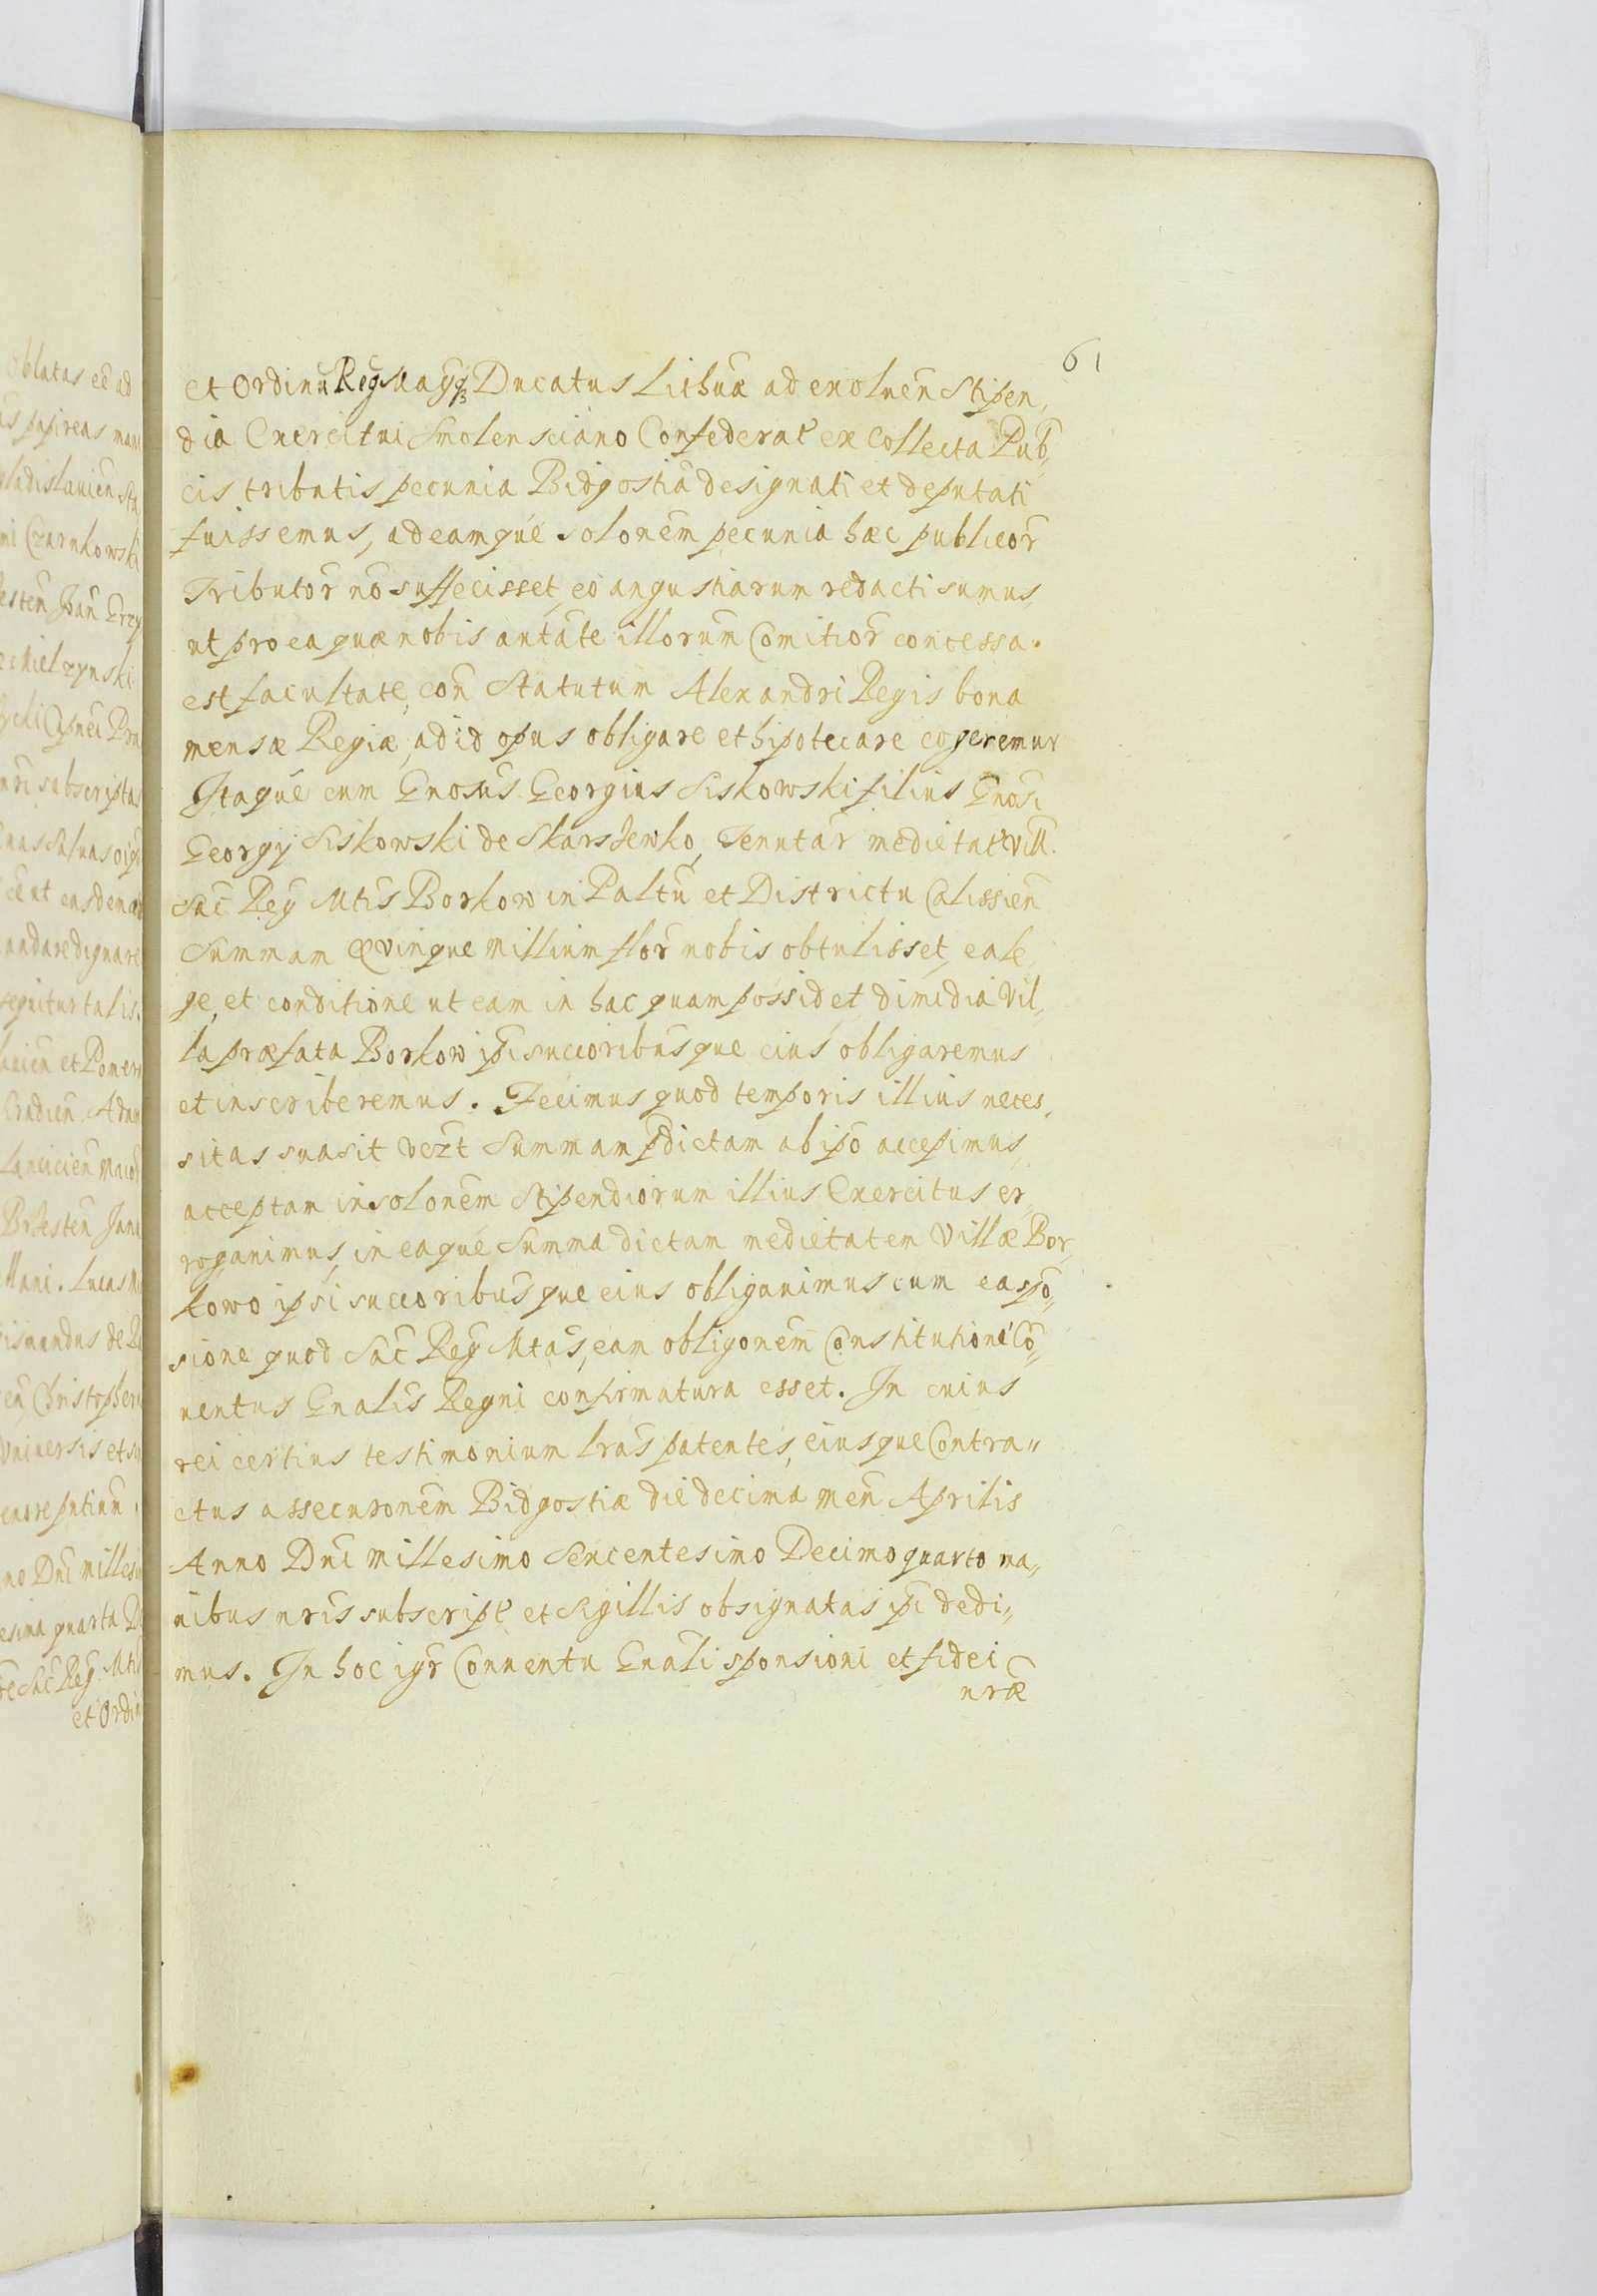 61
et Ordinū Reg Mag̃q₃ Ducatus Lithuæ ad exoluen̄ Stipen„
dia Exercitui Smolensciano Confederat̃ ex Collecta Pub„
cis tributis pecunia Bidgostiã designati et deputati
fuissemus, adeamquè solonēm pecunia hæc publicor̄
Tributor̄ nō suffecisset, eò angustiarum redacti sumus,
ut pro ea quæ nobis autãte illorum Comitior̄ concessa
est facultate, con̄ Statutum Alexandri Regis bona
mensæ Regiæ, ad id opus obligare et hipotecare cogeremur
Itaquè cum Gnosũs Georgius Siskowski filius Gnosi
Georgÿ Siskowski de Skarszewko, Tenutar̄ medietat̃ vill.
Sac̄ Reg̃ Mtis̄ Borkow in Paltũ et Districtu Calissien̄
Summam Qvinque Millium flor̄ nobis obtulisset, ea le„
ge, et conditione ut eam in hac quam possidet dimidia Vil„
la præfata Borkow ipi succoribusque eius obligaremus
et inscriberemus. Fecimus quod temporis illius neces„
sitas suasit vezt Summam pdictam ab ipo accepimus,
acceptam in solonēm Stipendiorum illius Exercitus er„
rogauimus, in eaquè Summa dictam medietatem Villæ Bor„
kowo ipsi succoribusque eius obligauimus cum ea spo„
sione quod Sac̄ Reg̃ Mtas̄, eam obligonēm Constitutione Cō„
uentus Gnalis̄ Regni confirmatura esset. In cuius
rei certius testimonium lras̄ patentes, eiusque Contra„
ctus assecuronēm Bidgostiæ die decima men̄ Aprilis
Anno Dni Millesimo Sexcentesimo Decimo quarto ma„
nibus nris̄ subscript̃ et Sigillis obsignatas ipi dedi„
mus. In hoc igr̄ Conuentu Gnali sponsioni et fidei
nræ